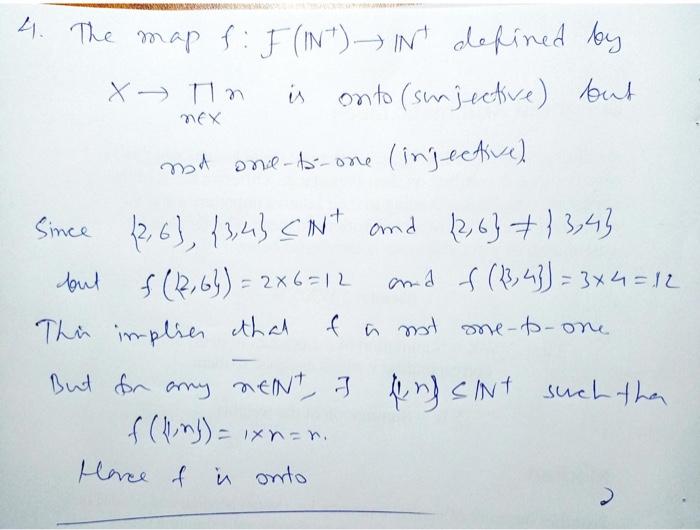 4. The map f: F(ℕ⁺) → ℕ⁺ defined by
X → Π n is onto (surjective) but
n∈X
not one-to-one (injective)
Since {2,6}, {3,4} ⊆ ℕ⁺ and {2,6} ≠ {3,4}
but f({2,6}) = 2×6=12 and f({3,4}) = 3×4=12
This implies that f is not one-to-one
But for any n∈ℕ⁺, ∃ {1,n} ⊆ ℕ⁺ such tha
f({1,n}) = 1×n=n.
Hence f is onto